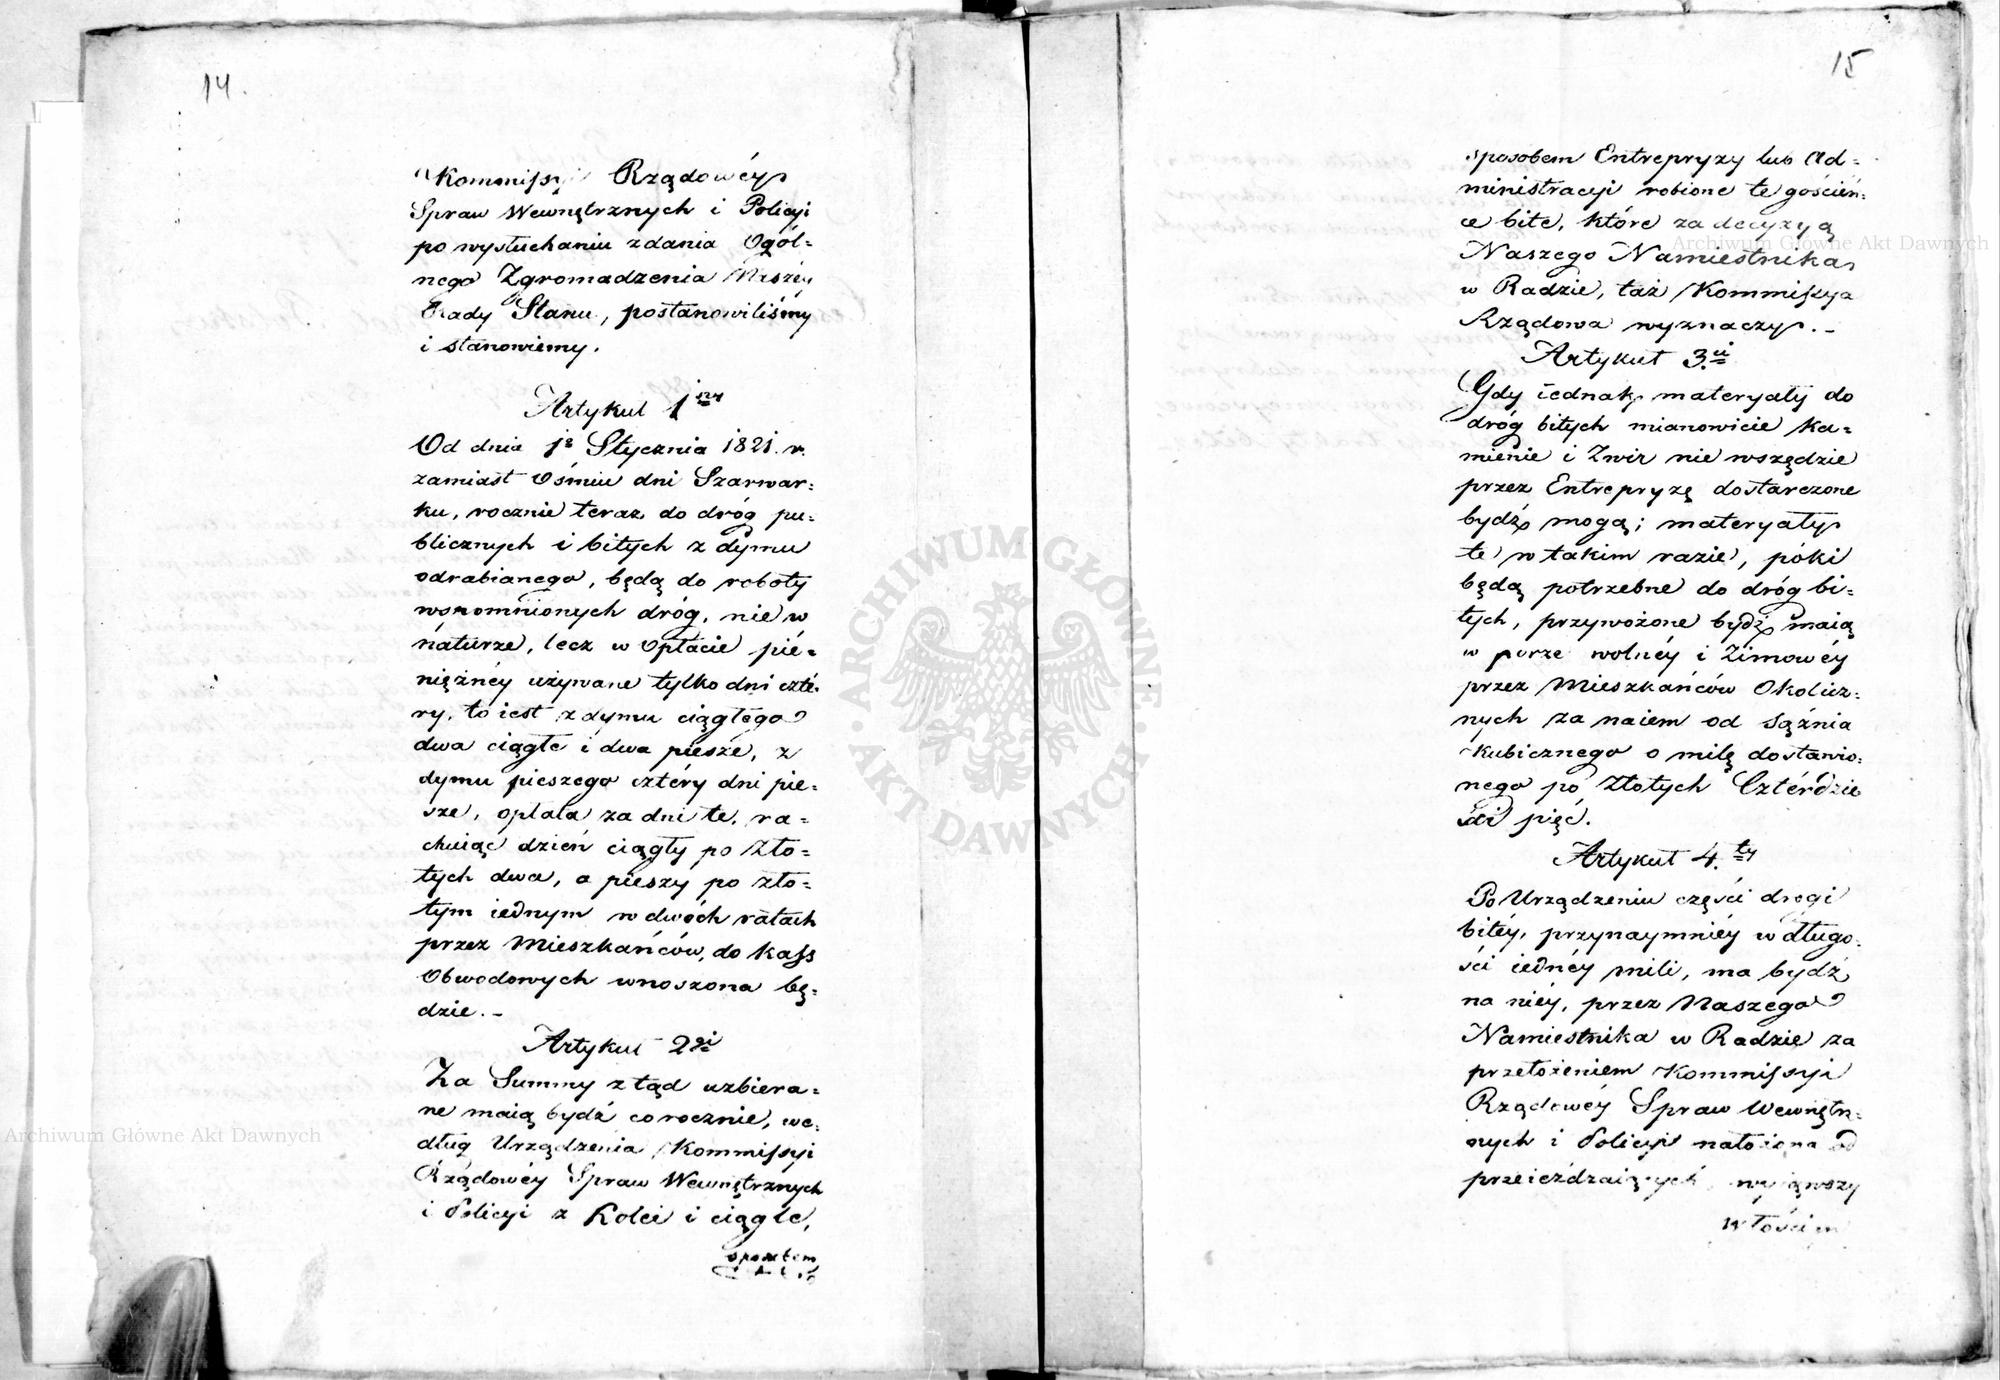 14.
Kommissyi Rządowéy
Spraw Wewnętrznych i Policyi
po wysłuchaniu zdania Ogól=
nego Zgromadzenia Naszéy
Rady Stanu, postanowiliśmy
i stanowiemy.
Artykuł 1ny
Od dnia 1o Stycznia 1821. r.
zamiast Ośmiu dni Szarwar=
ku, rocznie teraz do dróg pu=
blicznych i bitych z dymu
odrabianego, będą do roboty
wspomnionych dróg, nie w
náturze, lecz w Opłacie pié=
niężnéy używane tylko dni czté=
ry, to iest z dymu ciągłego
dwa ciągłe i dwa piesze, z
dymu pieszego cztéry dni pie=
sze, opłata za dni te, ra=
chuiąc dzień ciągły po Zło=
tych dwa, a pieszy po zło=
tym iednym w dwóch ratach
przez Mieszkańców, do Kass
Obwodowych wnoszona bę=
dzie.-
Artykuł 2gi
Za Summy z tąd uzbiera=
ne maią bydź corocznie, we=
dług Urządzenia Kommissyi
Rządowéy Spraw Wewnętrznych
i Policyi z Kolei i ciągle,
sposobem
15
sposobem Entrepryzy lub Ad=
ministracyi robione te goścień=
ce bite, które za decyzyą
Naszego Namiestnika
w Radzie, taż Kommissya
Rządowa wyznaczy.-
Artykuł 3.ci
Gdy iednak materyały do
dróg bitych mianowicie ka=
mienie i Zwir nie wszędzie
przez Entrepryzę dostarczone
bydź mogą; materyały
te w takim razie, póki
będą potrzebne do dróg bi=
tych, przywożone bydź maią
w porze wolnéy i Zimowéy
przez Mieszkańców Okolicz=
nych za naiem od Sążnia
Kubicznego o milę dostawio=
nego po Złotych Cztérdzie
ści pięć.
Artykuł 4.ty
Po Urządzeniu części drogi
bitéy, przynaymniéy w długo=
ści iednéy mili, ma bydź
na niéy, przez Naszego
Namiestnika w Radzie za
przełożeniem Kommissyi
Rządowéy Spraw Wewnętrz=
nych i Policyi nałożona od
przeieżdzaiących, wyiąwszy
Włościan
ARCHIWUM GŁÓWNE AKT DAWNYCH
Archiwum Główne Akt Dawnych
Archiwum Główne Akt Dawnych